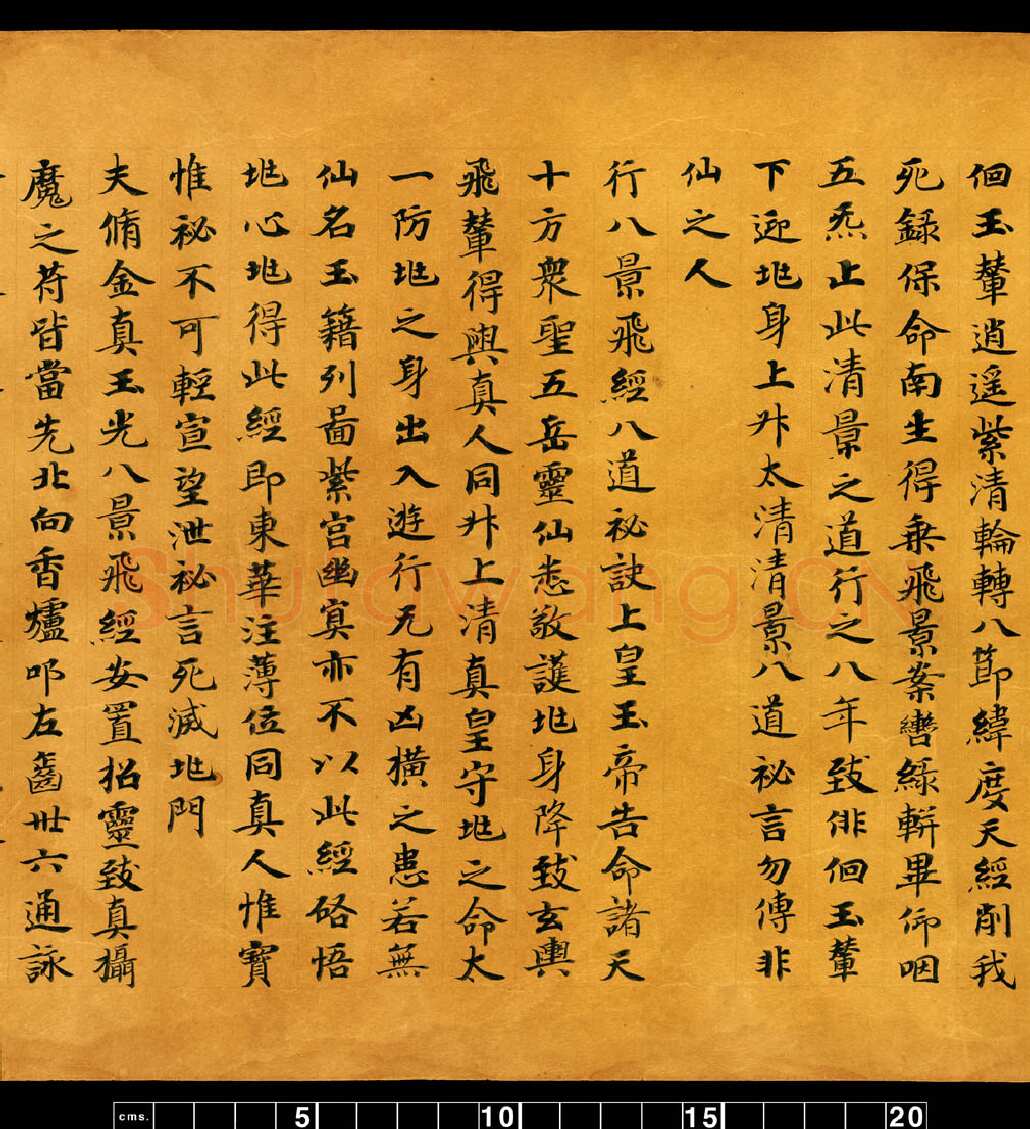 佪玉輦逍遥紫清輪轉八節緯度天經削我
死録保命南生得乗飛景案轡緑軿畢仰咽
五炁止此清景之道行之八年致俳佪玉輦
下迎兆身上升太清清景八道祕言勿傳非
仙之人
行八景飛經八道祕訣上皇玉帝告命諸天
十方衆聖五岳靈仙悉敬護兆身降致玄輿
飛輦得與真人同升上清真皇守兆之命太
一防兆之身出入遊行无有凶横之患若無
仙名玉籍列啚紫宫幽冥亦不以此經啓悟
兆心兆得此經即東華注薄位同真人惟寶
惟祕不可輕宣望泄祕言死滅兆門
夫脩金真玉光八景飛經安置招靈致真攝
魔之苻皆當先北向香爐叩左齒卅六通詠
Shufawang.CN
cms. 5 10 15 20